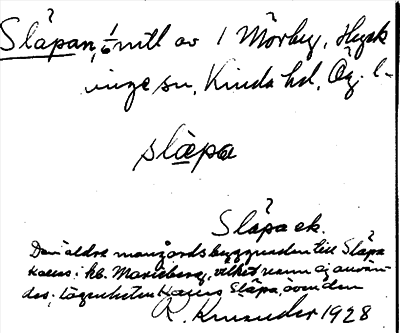 Släpan, 1/6 mtl av 1 Mörby, Hyck
inge sn, Kinda hd, Ög. l.
slapa
Släpa ek.
Den äldre mangårdsbyggnaden till Släpa
kallas i kb. Marieberg, vilket namn ej använ
des; lägenheten kallas Släpa, även den
R. 1928